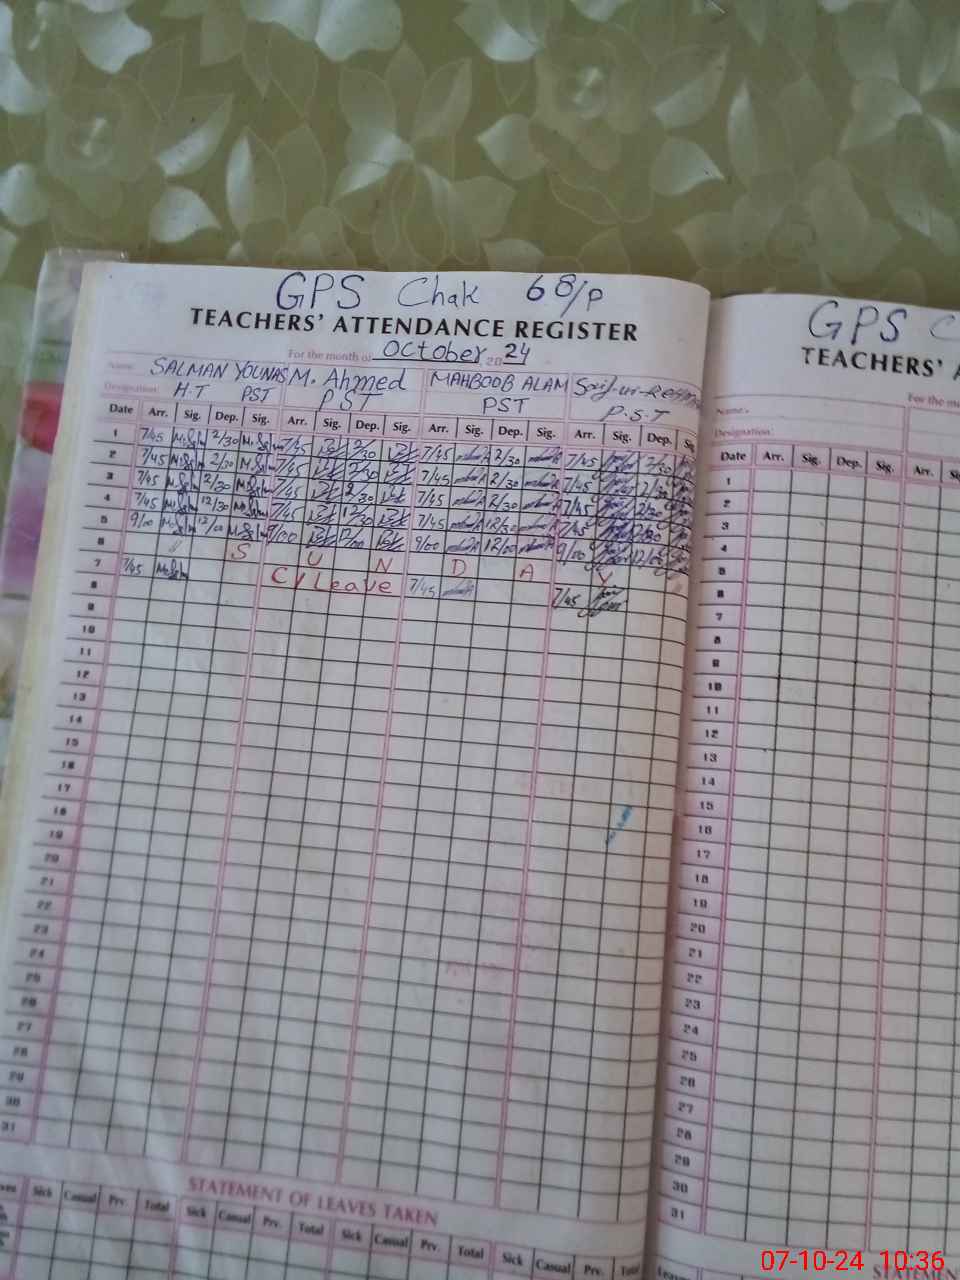 GPS Chak 68/P
TEACHERS' ATTENDANCE REGISTER
For the month of October 2024
Name: SALMAN YOUNAS M. Ahmed MAHBOOB ALAM
Designation: H.T PST PST PST P.S.T
Date Arr. Sig. Dep. Sig. Arr. Sig. Dep. Sig. Arr. Sig. Dep. Sig. Arr. Sig. Dep. Sig
1 7/45 2/30 7/45 2/30 7/45 2/30 7/45 2/30
2 7/45 2/30 7/45 2/30 7/45 2/30 7/45 2/30
3 7/45 2/30 7/45 2/30 7/45 2/30 7/45 2/30
4 7/45 12/30 7/45 12/30 7/45 12/30 7/45
5 9/00 12/00 9/00 9/00 12/00 9/00 12/00
6 " S U N D A Y "
7 7/45 C/Leave 7/45 7/45
8
9
10
11
12
13
14
15
16
17
18
19
20
21
22
23
24
25
26
27
28
29
30
31
STATEMENT OF LEAVES TAKEN
Sick Casual Prv. Total Sick Casual Prv. Total Sick Casual Prv. Total Sick Casual Prv. Total
GPS C
TEACHERS' A
For the m
Name:
Designation:
Date Arr. Sig. Dep. Sig. Arr. Sig
1
2
3
4
5
6
7
8
9
10
11
12
13
14
15
16
17
18
19
20
21
22
23
24
25
26
27
28
29
30
31
STATEMEN
Leaves Sick Casual Prv. Total
07-10-24 10:36